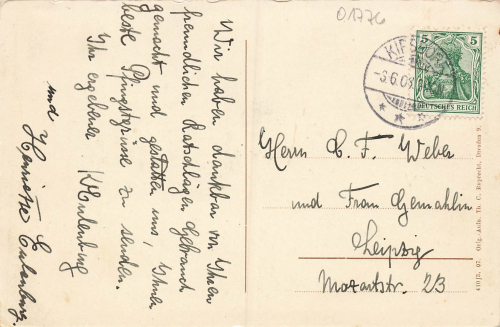 01776
Wir haben dankbar von Ihren
freundlichen Ratschlägen Gebrauch
gemacht und gestatten uns, Ihnen
beste Pfingstgrüsse zu senden.
Ihr ergebener K. Eulenburg
und Henriette Eulenburg.
5 5
DEUTSCHES REICH
6.08
Herrn C. F. Weber
und Frau Gemahlin
Leipzig
Mozartstr. 23
Orig.-Aufn. Th. C. Ruprecht, Dresden 9.